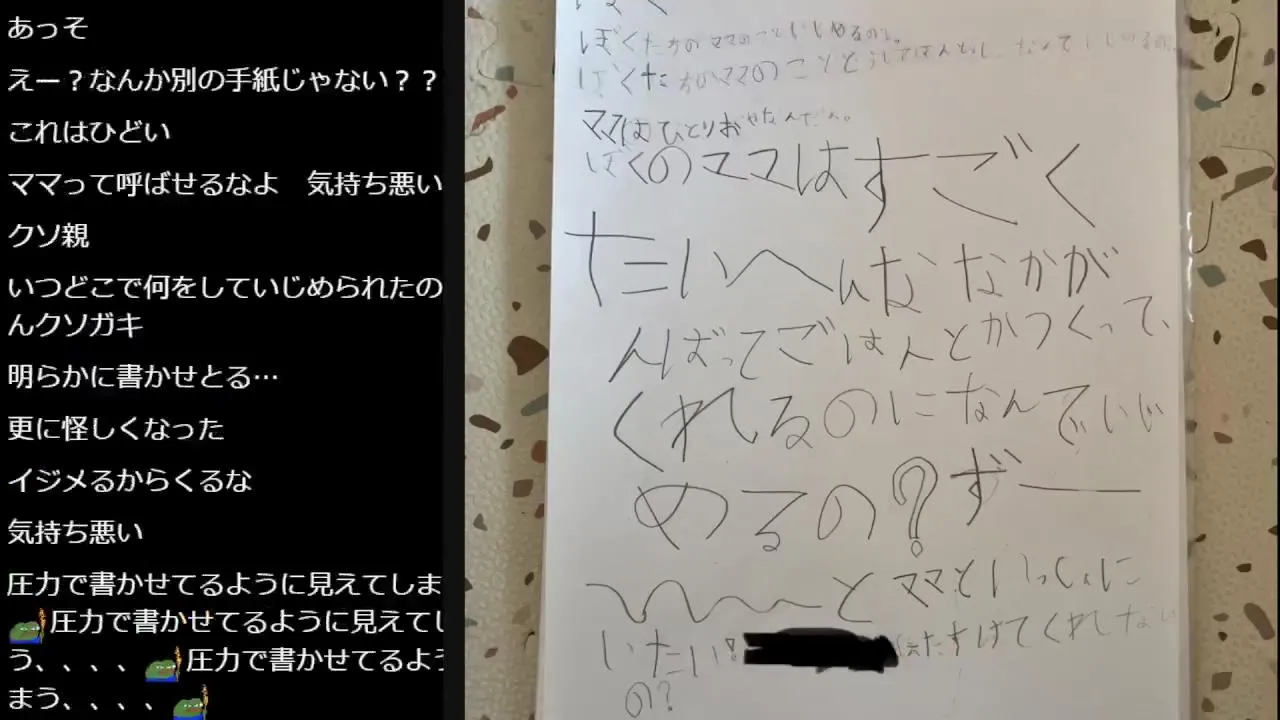 あっそ
えー？なんか別の手紙じゃない？？
これはひどい
ママって呼ばせるなよ　気持ち悪い
クソ親
いつどこで何をしていじめられたの
んクソガキ
明らかに書かせとる…
更に怪しくなった
イジメるからくるな
気持ち悪い
圧力で書かせてるように見えてしま
圧力で書かせてるように見えてし
う、、、、圧力で書かせてるよう
まう、、、、
ぼくたちの ママのこといじめるの。
ぼくたちのママのこと
ママはひとりおやなんだよ。
ぼくのママはすごく
たいへんな なかが
んばってごはんとかつくって、
くれるのになんでいじ
めるの？ずー
〜〜〜とママといっしょに
いたい！ たすけてくれしない
の？